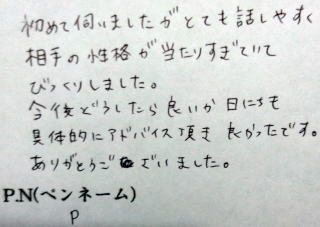 初めて伺いましたがとても話しやすく
相手の性格が当たりすぎていて
びっくりしました。
今後どうしたら良いか日にちも
具体的にアドバイス頂き良かったです。
ありがとうございました。
P.N(ペンネーム)
P